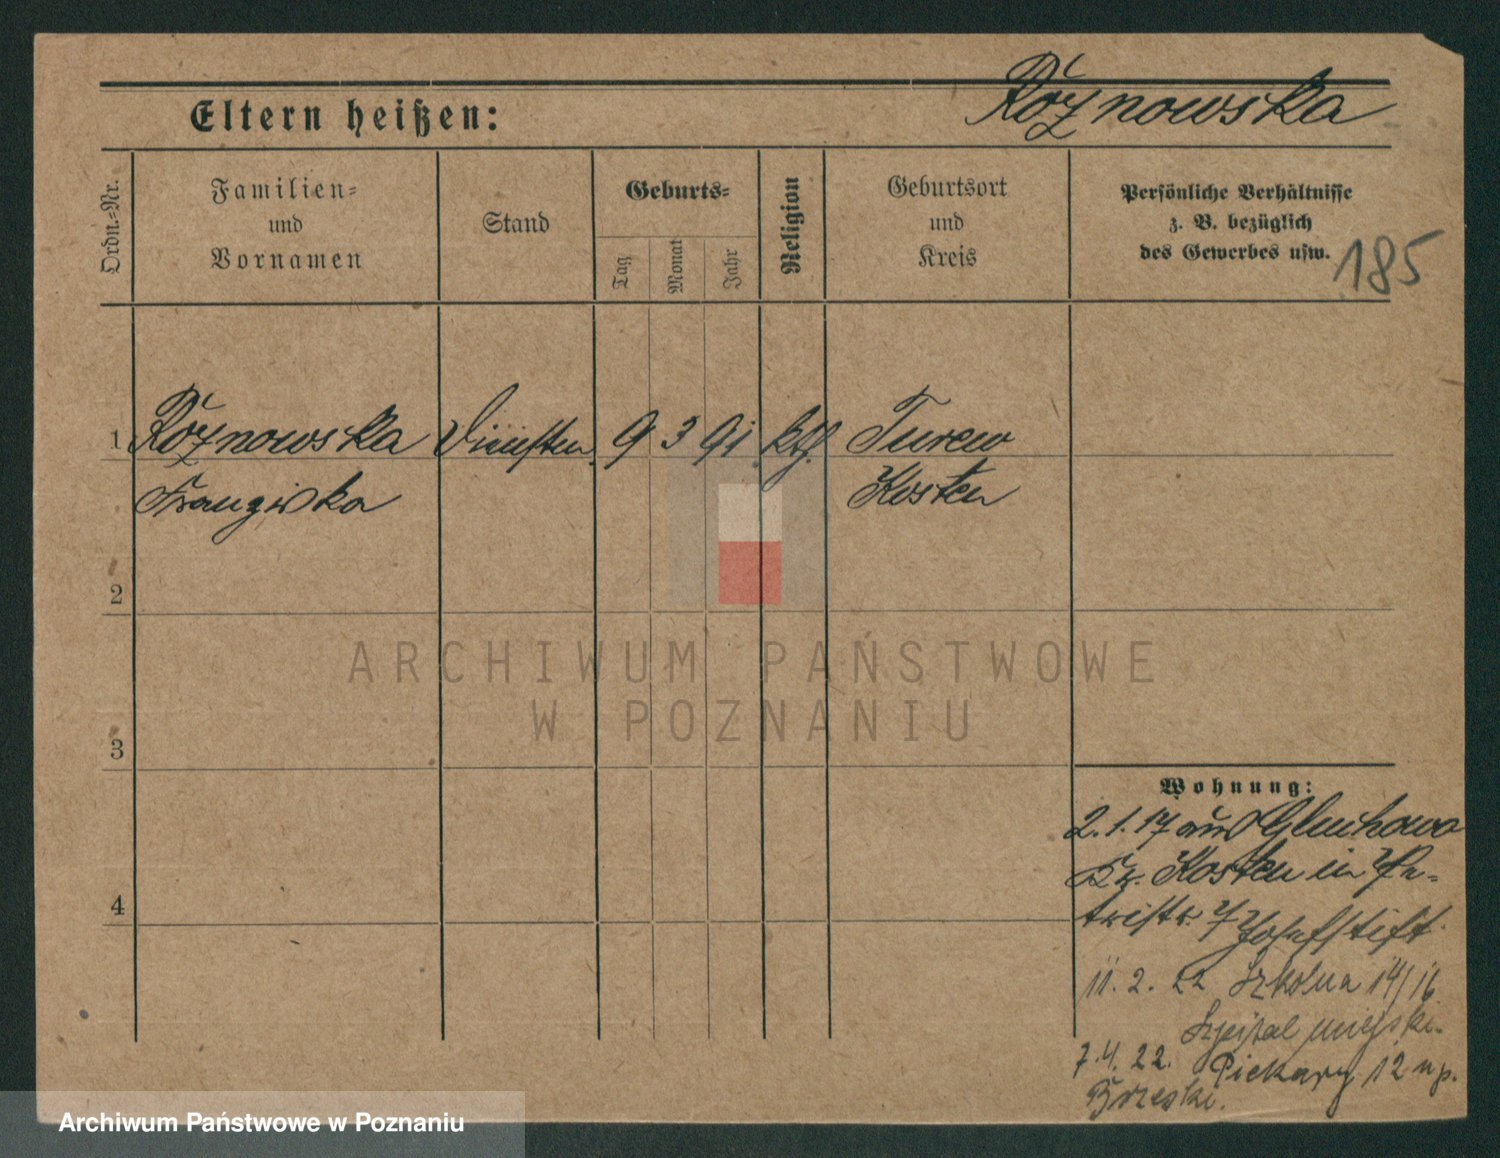 Eltern heißen:
Różnowska
Ordn.=Nr.
Familien=
und
Vornamen
Stand
Geburts=
Tag
Monat
Jahr
Religion
Geburtsort
und
Kreis
Persönliche Verhältnisse
z. B. bezüglich
des Gewerbes usw.
185
1 Różnowska 9 3 91 kth. Turew
Franziska Kosten
2
3
4
Wohnung:
2.1.17 aus Gluchowo
Kr. Kosten in Pe-
tristr. 7 Josefstift
11.2.22 Szkolna 14/16
Szpital miejski.
7.4.22. Piekary 12 u p.
Brzeski.
ARCHIWUM PAŃSTWOWE
W POZNANIU
Archiwum Państwowe w Poznaniu